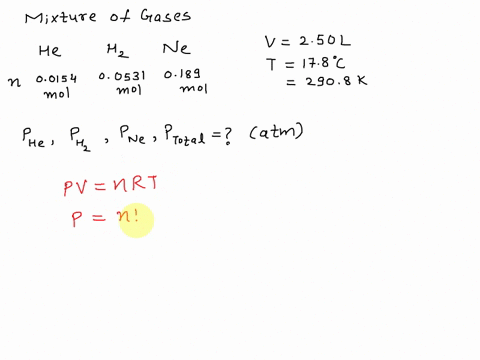 Mixture of Gases
He H₂ Ne
n 0.0154 mol 0.0531 mol 0.189 mol
V = 2.50 L
T = 17.8°C
= 290.8 K
P_He, P_H₂, P_Ne, P_Total = ? (atm)
PV = nRT
P = n